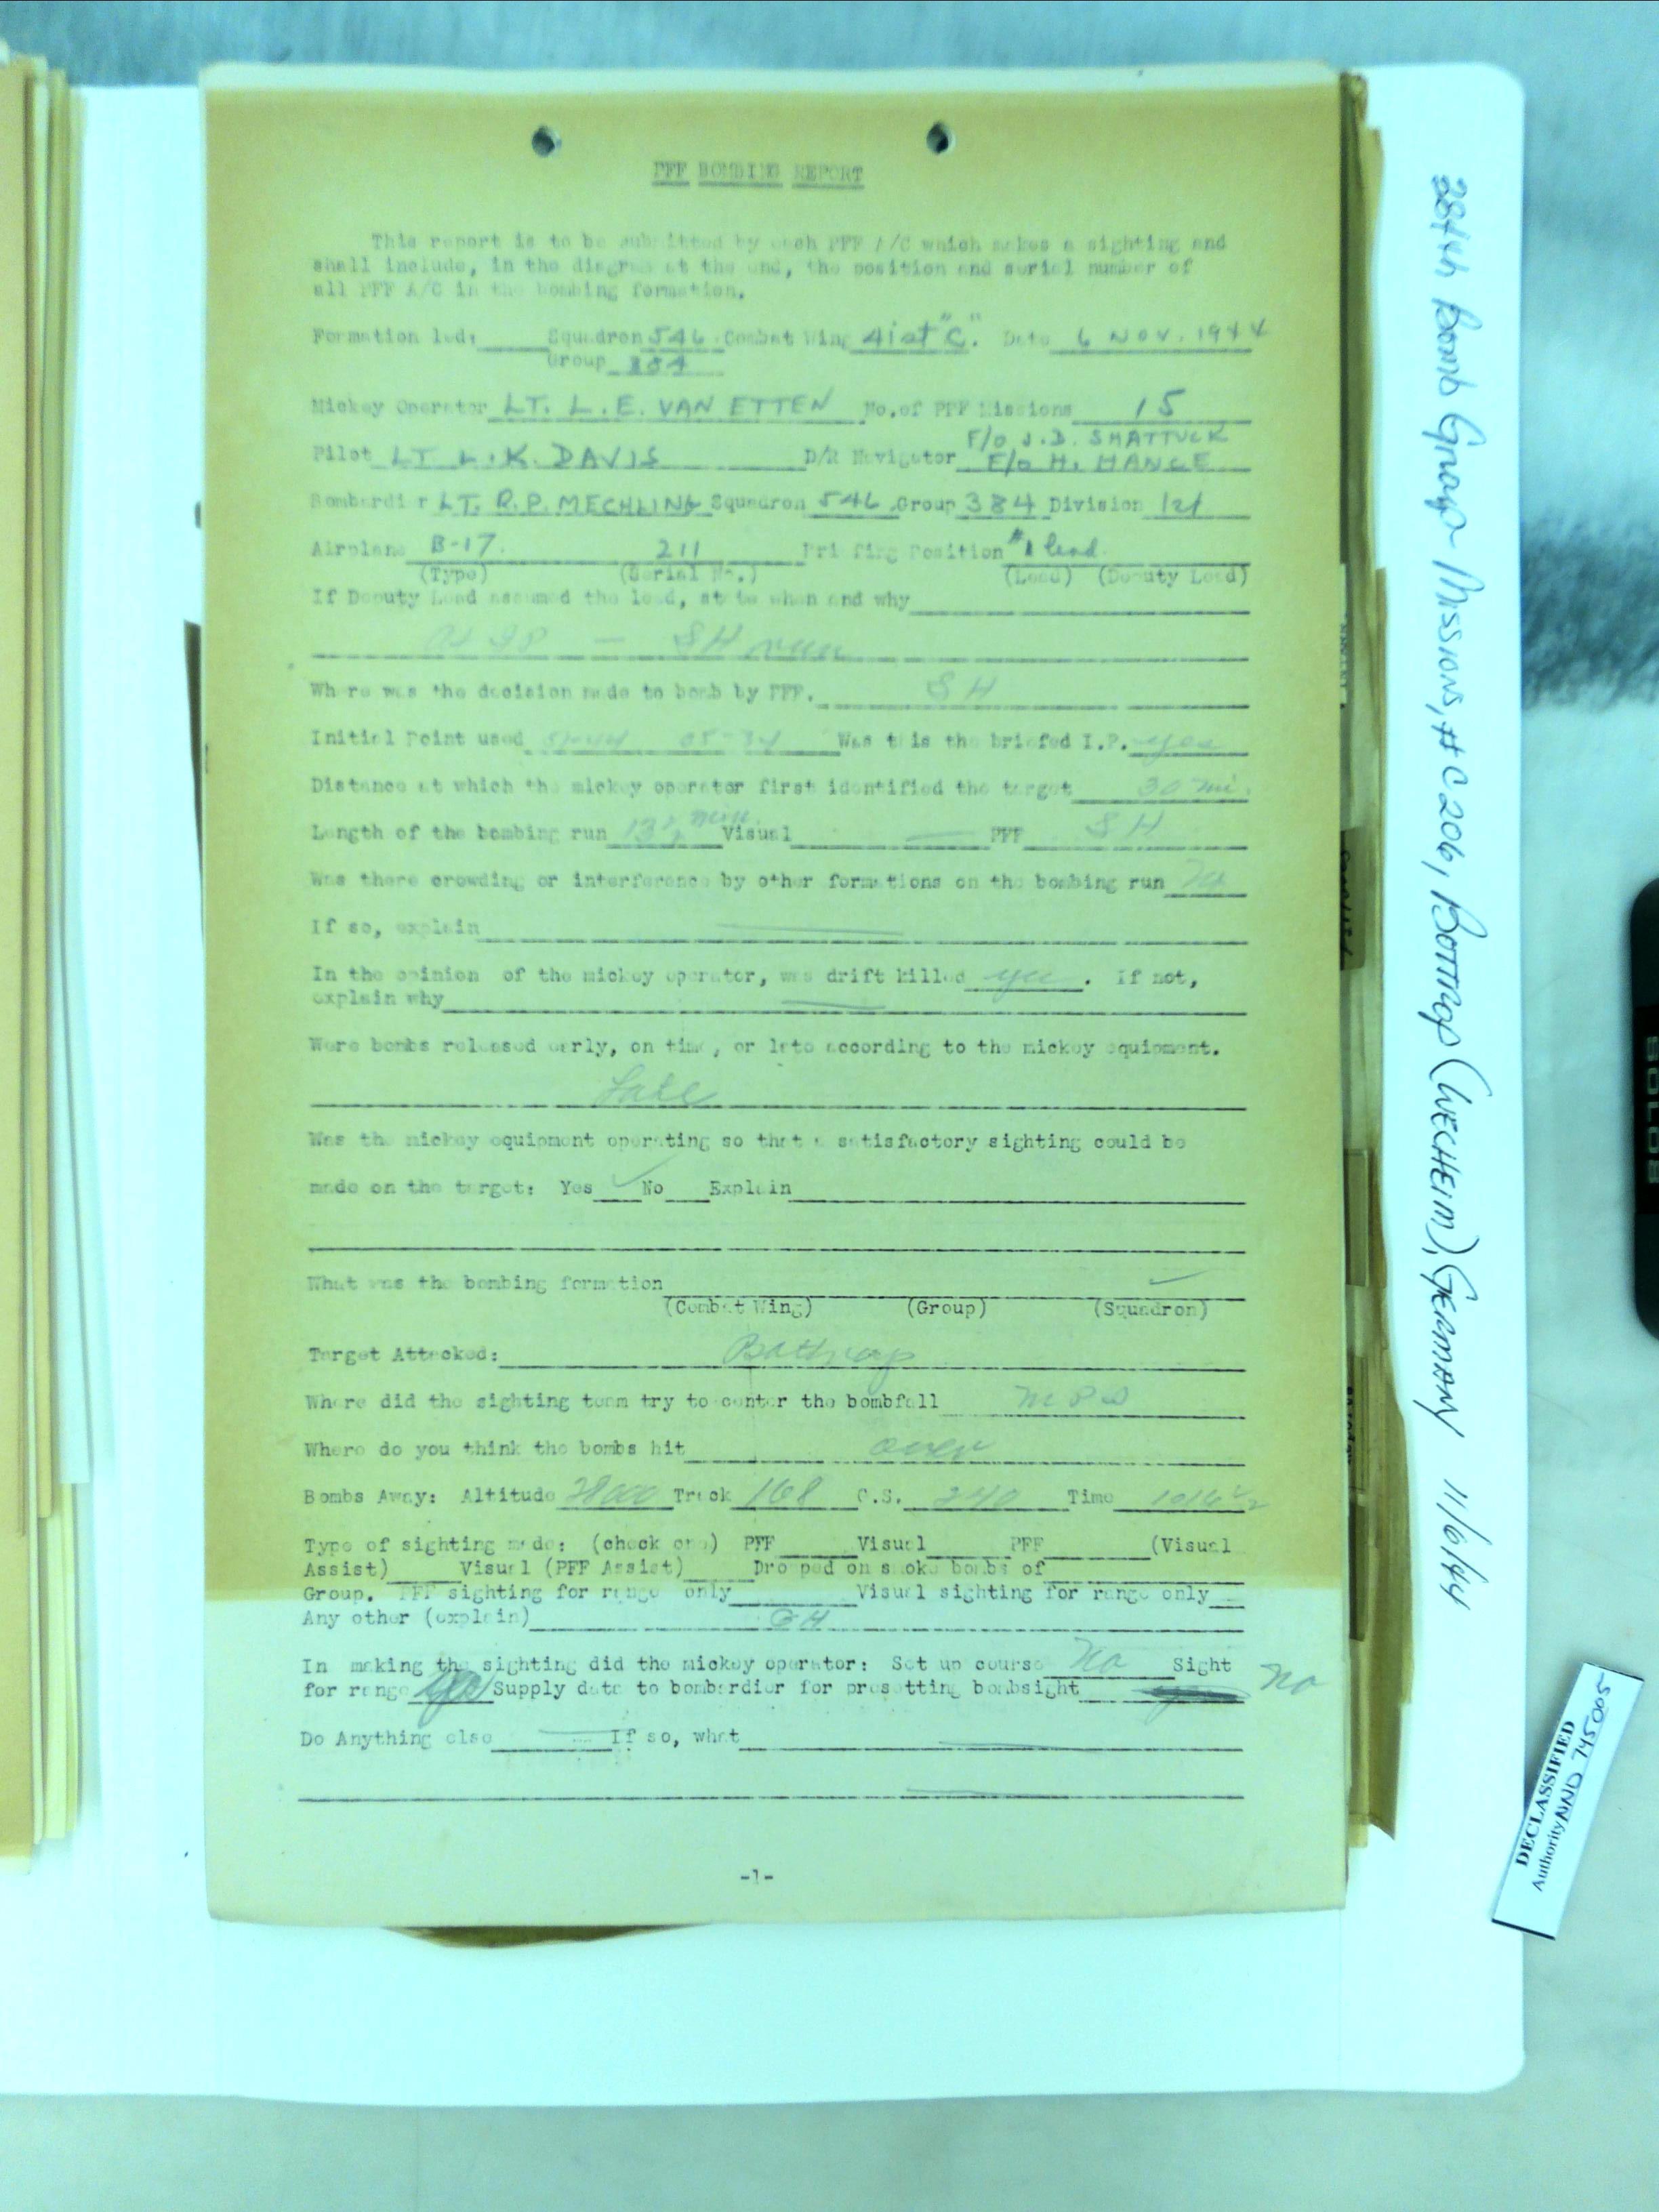 PFF BOMBING REPORT
This report is to be submitted by each PFF A/C which makes a sighting and
shall include, in the diagram at the end, the position and serial number of
all PFF A/C in the bombing formation.
Formation led: Squadron 546 Combat Wing 41st "C". Date 6 NOV. 1944
Group 384
Mickey Operator LT. L. E. VAN ETTEN No. of PFF Missions 15
F/O J.D. SHATTUCK
Pilot LT L. K. DAVIS D/R Navigator F/O H. HANCE
Bombardier LT. R.P. MECHLING Squadron 546 Group 384 Division 1st
Airplane B-17. 211 Briefing Position #1 lead
(Type) (Serial No.) (Lead) (Deputy Lead)
If Deputy Lead assumed the lead, state when and why
run
Where was the decision made to bomb by PFF. GH
Initial Point used 05-34 Was this the briefed I.P. yes
Distance at which the mickey operator first identified the target 30 mi.
Length of the bombing run 13½ min. Visual — PFF GH
Was there crowding or interference by other formations on the bombing run No
If so, explain —
In the opinion of the mickey operator, was drift killed yes. If not,
explain why —
Were bombs released early, on time, or late according to the mickey equipment.
Late
Was the mickey equipment operating so that a satisfactory sighting could be
made on the target: Yes ✓ No Explain
What was the bombing formation ✓
(Combat Wing) (Group) (Squadron)
Target Attacked: Bottrop
Where did the sighting team try to center the bombfall
Where do you think the bombs hit over
Bombs Away: Altitude 28000 Track 168 G.S. 240 Time 1016½
Type of sighting made: (check one) PFF Visual PFF (Visual
Assist) Visual (PFF Assist) Dropped on smoke bombs of
Group. PFF sighting for range only Visual sighting for range only
Any other (explain) GH
In making the sighting did the mickey operator: Set up course No Sight
for range yes Supply data to bombardier for presetting bombsight No
Do Anything else — If so, what —
-1-
384th Bomb Group Missions, #C206, Bottrop (Wechein), Germany 11/6/44
DECLASSIFIED
Authority NND 745005